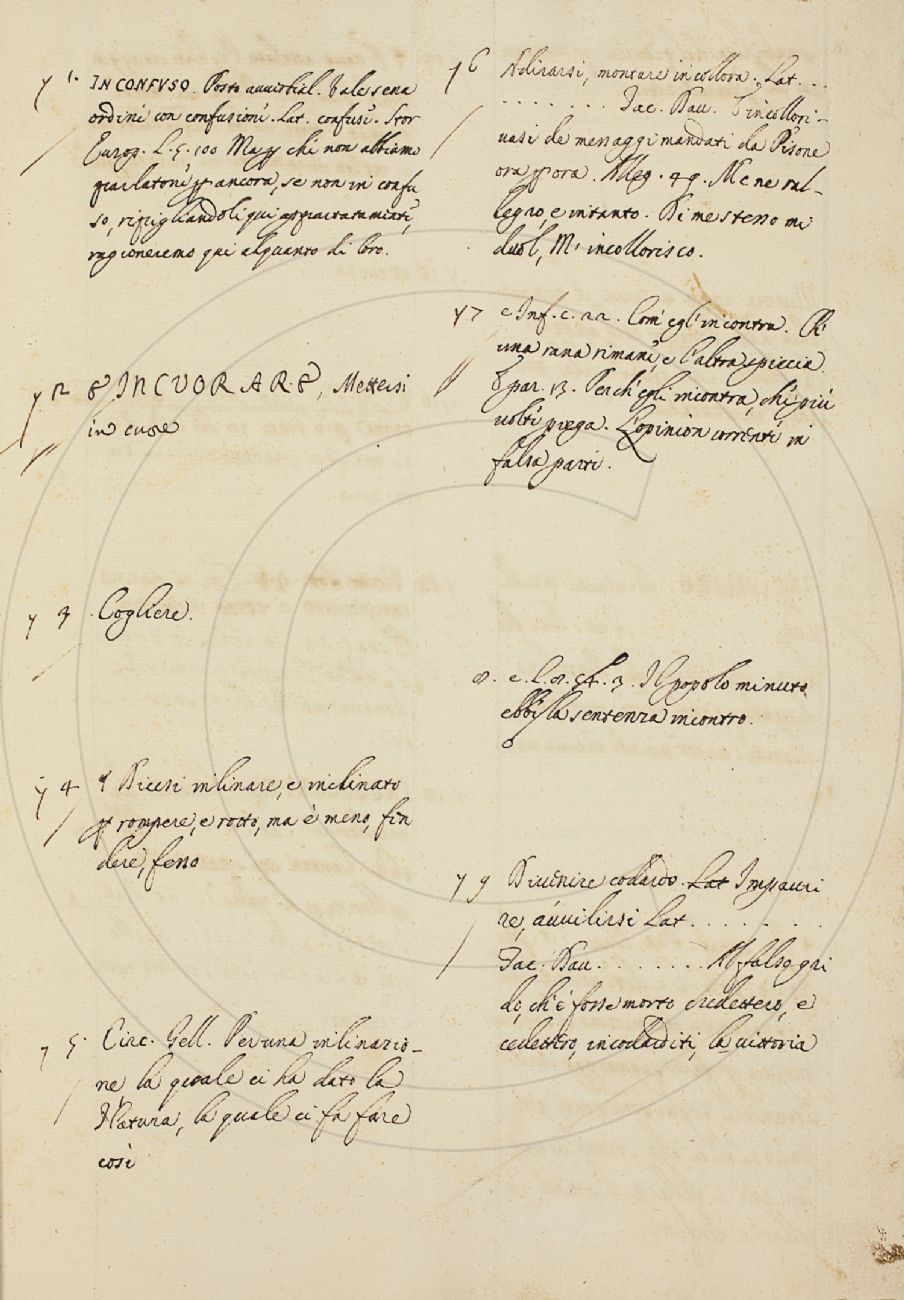 y 1. INCONFUSO. Posto avverbial. Vale senza
ordine con confusione. Lat. confuse. Stor
Europ. L. 5. 100 Ma chi non abbiamo
parlatone ancora, se non in confu
so, ripigliandoli qui
ragioneremo qui alquanto di loro.
y 2 § INCUORARE §, Mettersi
in cuore
y 3 Cogliere.
y 4 § Dicesi inclinare, e inclinato
rompere, e rotto, ma è meno, fen
dere, fesso
y 5. Circ. Gell. Per una inclinazio-
ne, la quale ci ha dato la
Natura, la quale ci fa fare
così
y 6 Adirarsi, montare in collora. Lat. . .
. . . . . . . Tac. Dav. S'incollori-
vasi de messaggi mandati da Pisone
ora ora. Alleg. 49. Me ne ral-
legro, e intanto. Di me stesso mi
duol, M' incollorisco.
y 7 e Inf. c. 22. Com' egl' incontra. Ch'
una rana rimane, e l'altra spiccia
E par. 13. Perch' egli incontra, che più
volte piega. L'opinion corrente in
falsa parte.
8. e. l. 8. 54. 3. Il popolo minuto
ebbe la sentenza incontro.
y 9 Divenire codardo. Lat Impauri
re, avvilirsi Lat . . . . . . .
Tac. Dav. . . . . . . Al falso gri
do, ch' e' fosse morto credettero, e
cedettero, incodarditi, la vittoria